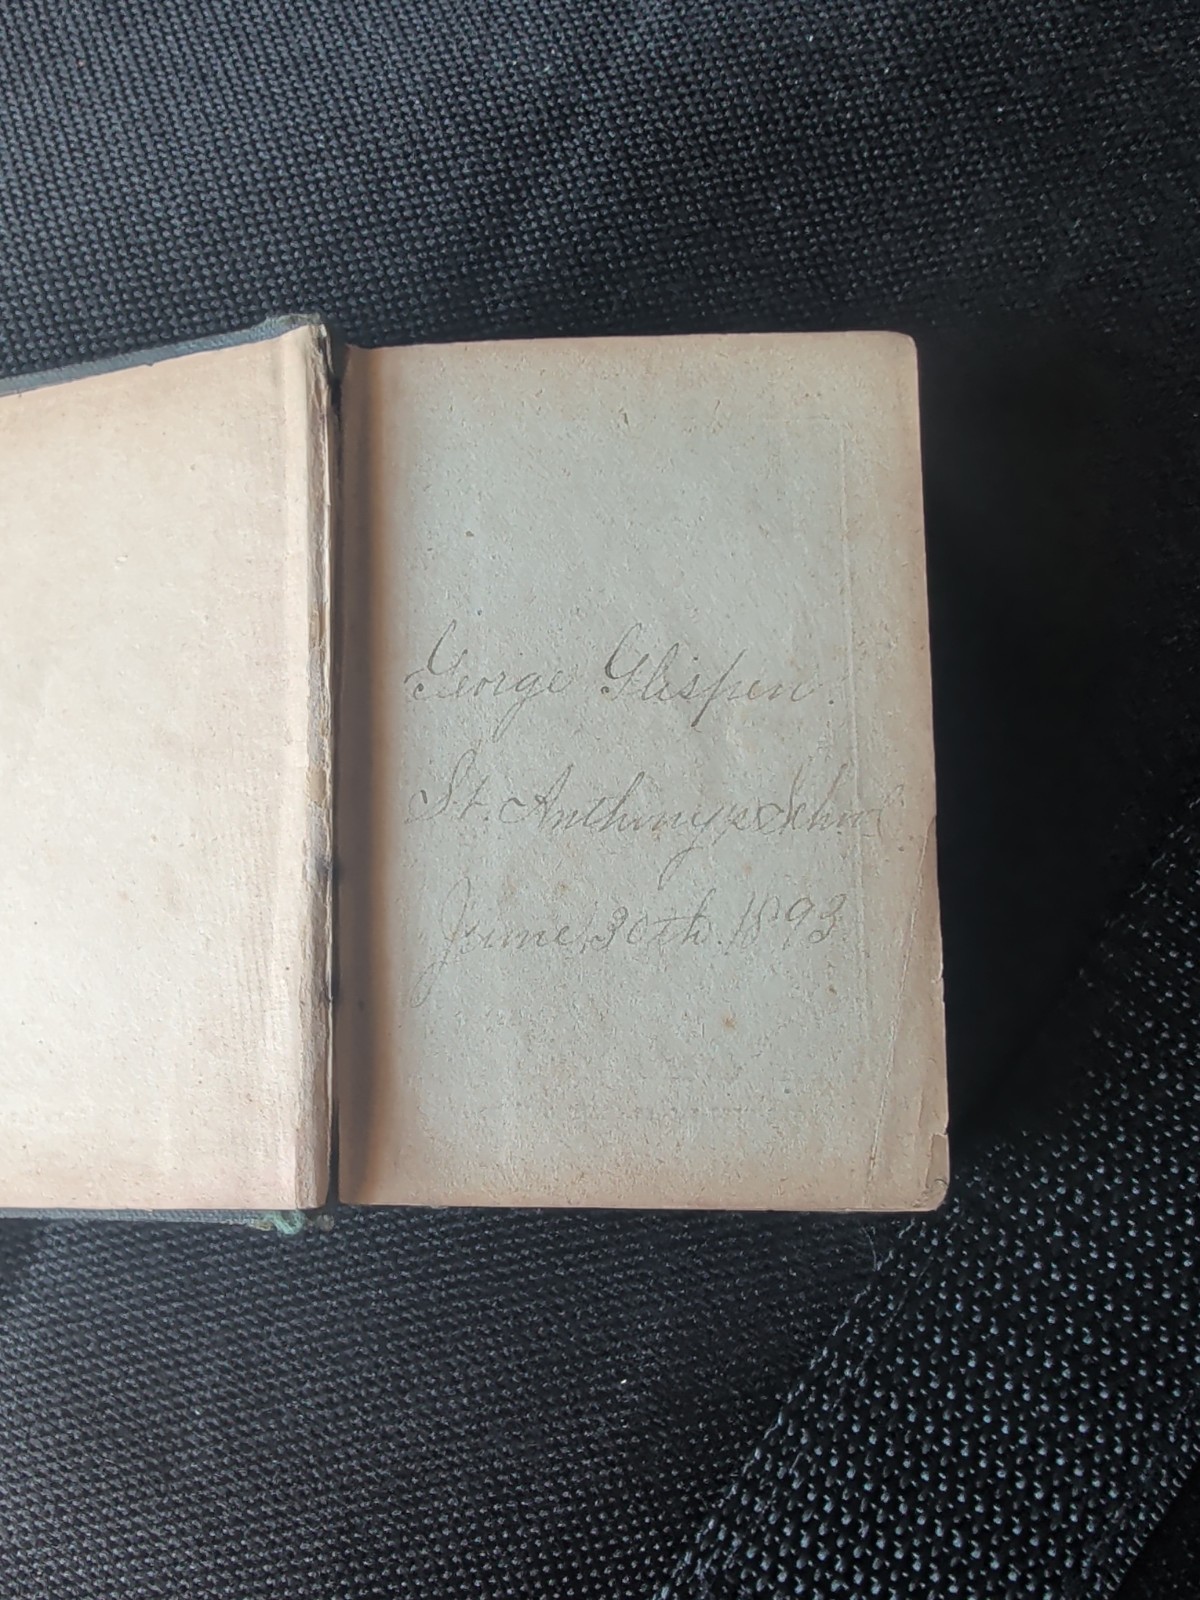 George Glispen.
St. Anthony's School
June 30th. 1893